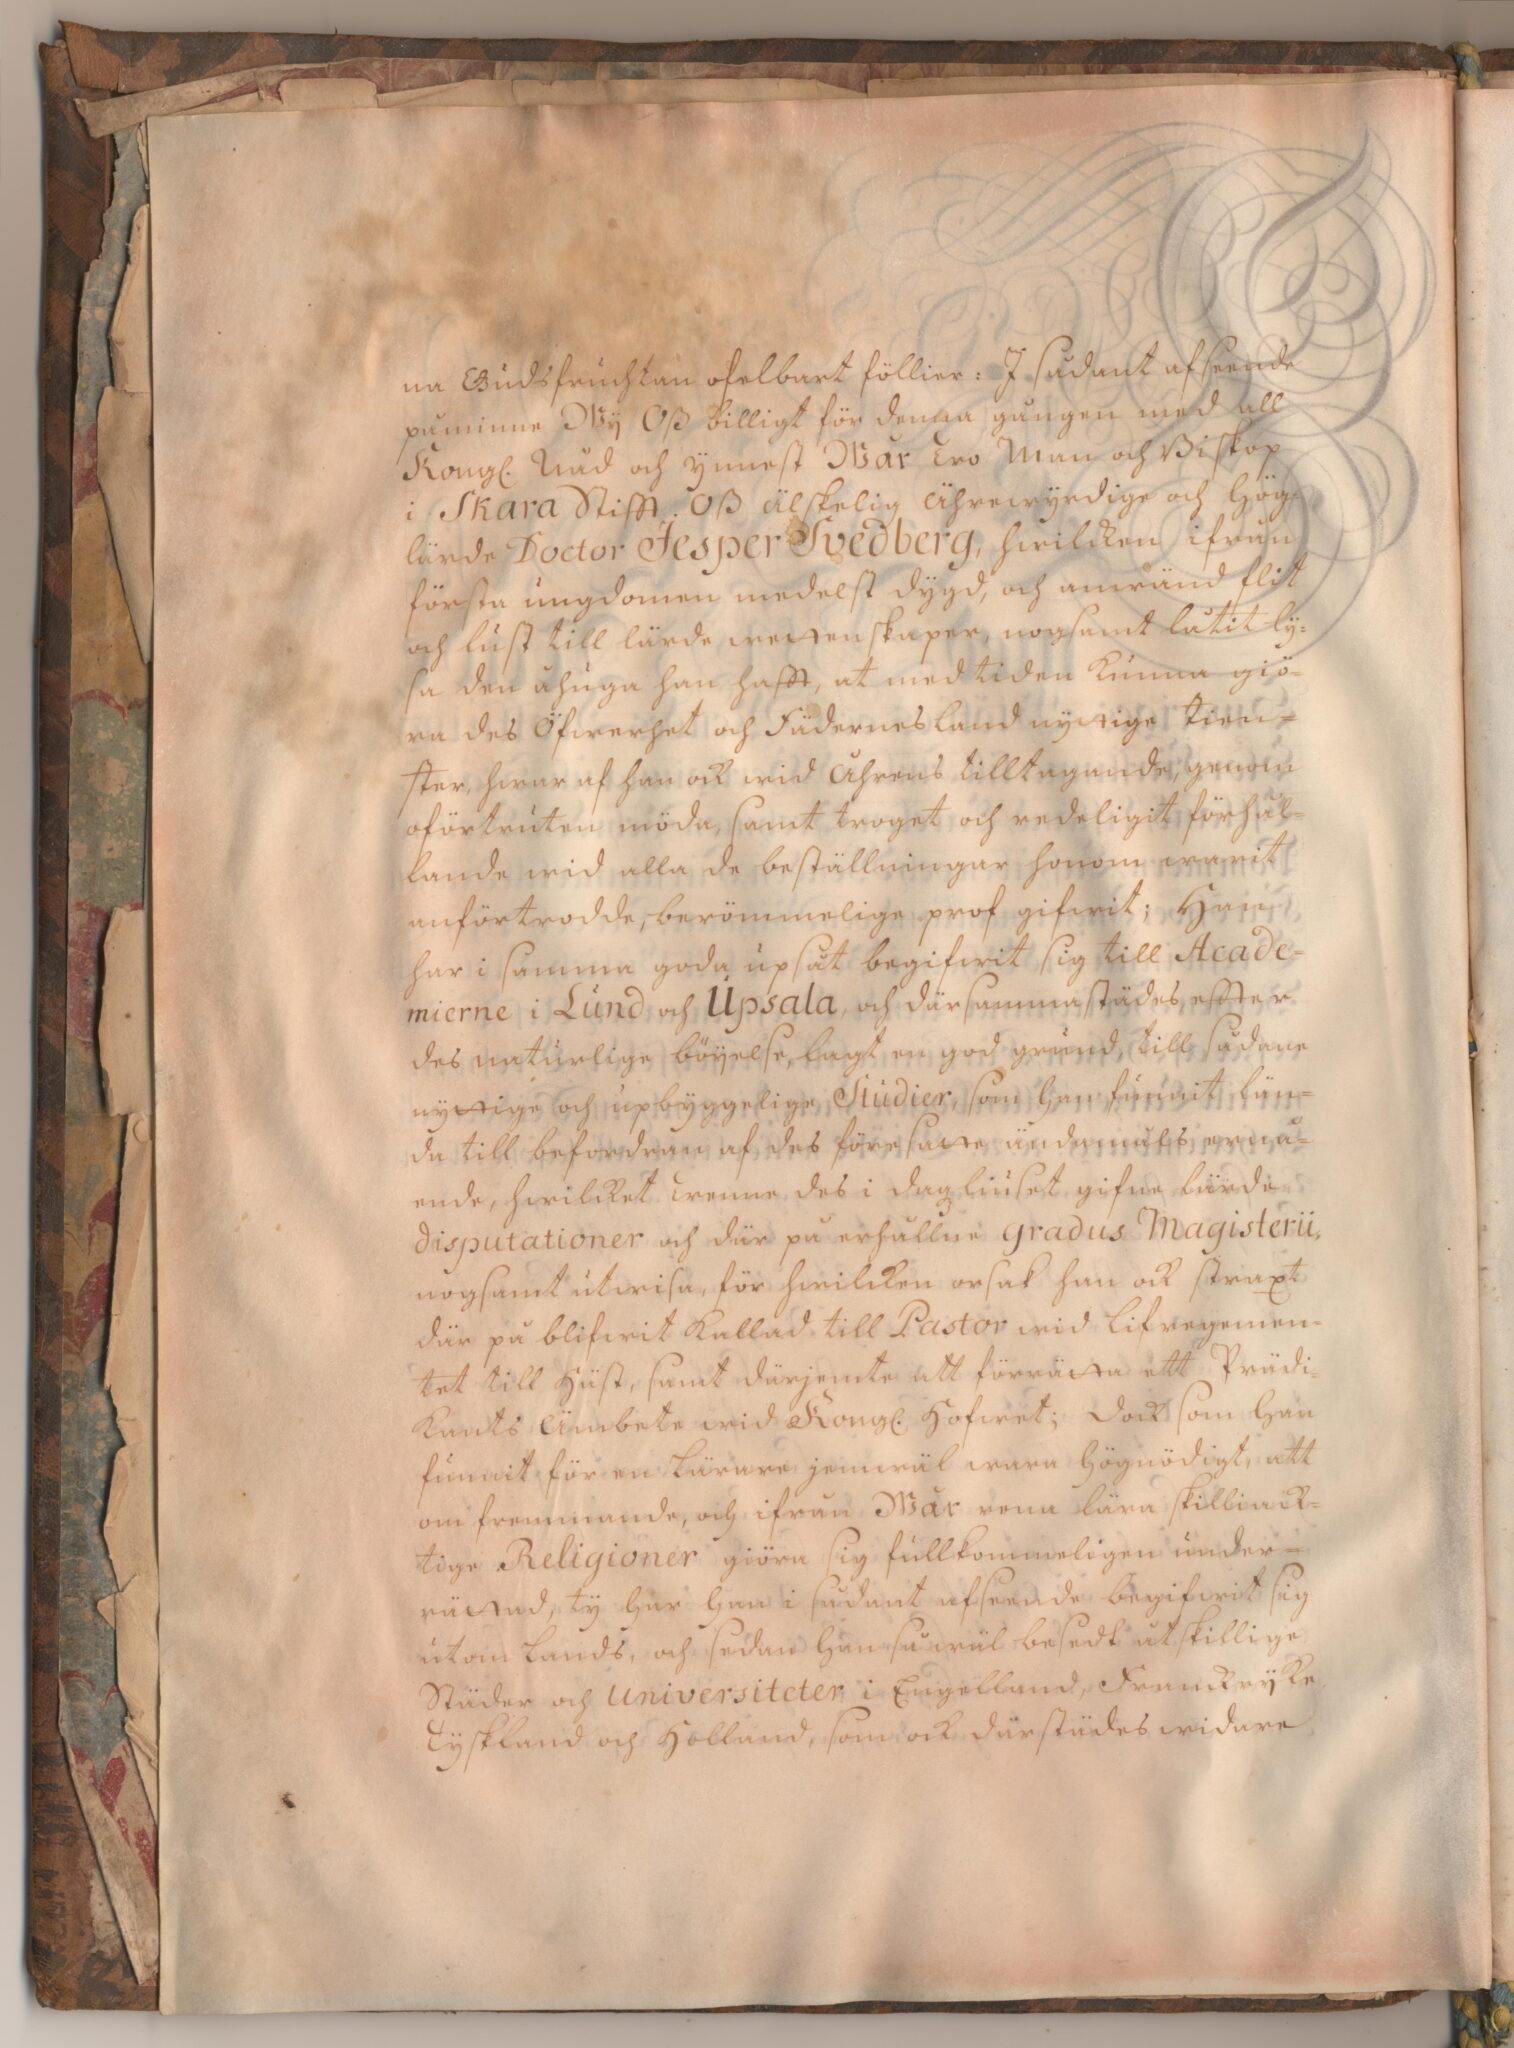 na Gudsfruchtan ofelbart föllier: I sådant afseende
påminne Wy Oß billigt för denna gången med all
Kongl. Nåd och ynnest Wår Tro Man och Biskop
i Skara Stifft. Oß älskelig Ährewyrdige och Hög=
lärde Doctor Jesper Svedberg, hwilcken ifrån
första ungdomen medelst dygd, och anwänd flit
och lust till lärde wettenskaper, nogsamt låtit ly=
sa den åhuga han hafft, at med tiden kunna giö=
ra des Öfwerhet och Fädernesland nyttige tien=
ster, hwar af han ock wid Åhrens tilltagande, genom
oförtruten möda, samt troget och redeligit förhål=
lande wid alla de beställningar honom warit
anförtrodde, berömmelige prof gifwit; Han
har i samma goda upsåt begifwit sig till Acade=
mierne i Lund och Upsala, och därsammastädes, effter
des naturlige böyelse, lagt en god grund, till sådane
nyttige och upbyggelige Studier, som han funnit län=
da till befordran af des föresatte ändamåls ernå=
ende, hwilcket trenne des i dagliuset gifne lärde
disputationer och där på erhållne gradus Magisterii,
nogsamt utwisa, för hwilcken orsak han ock straxt
där på blifwit kallad till Pastor wid Lifregemen=
tet till Häst, samt därjemte att förrätta ett Prädi=
kants Ämbete wid Kongl. Hofwet; Dock som han
funnit för en Lärare jemwäl wara högnödigt, att
om fremmande, och ifrån Wår rena lära skilliack=
tige Religioner giöra sig fullkommeligen under=
rättad, ty har han i sådant afseende begifwit sig
utom Lands, och sedan han så wäl besedt åtskillige
Städer och Universiteter i Engelland, Franckryke
Tyskland och Holland, som ock därstädes widare